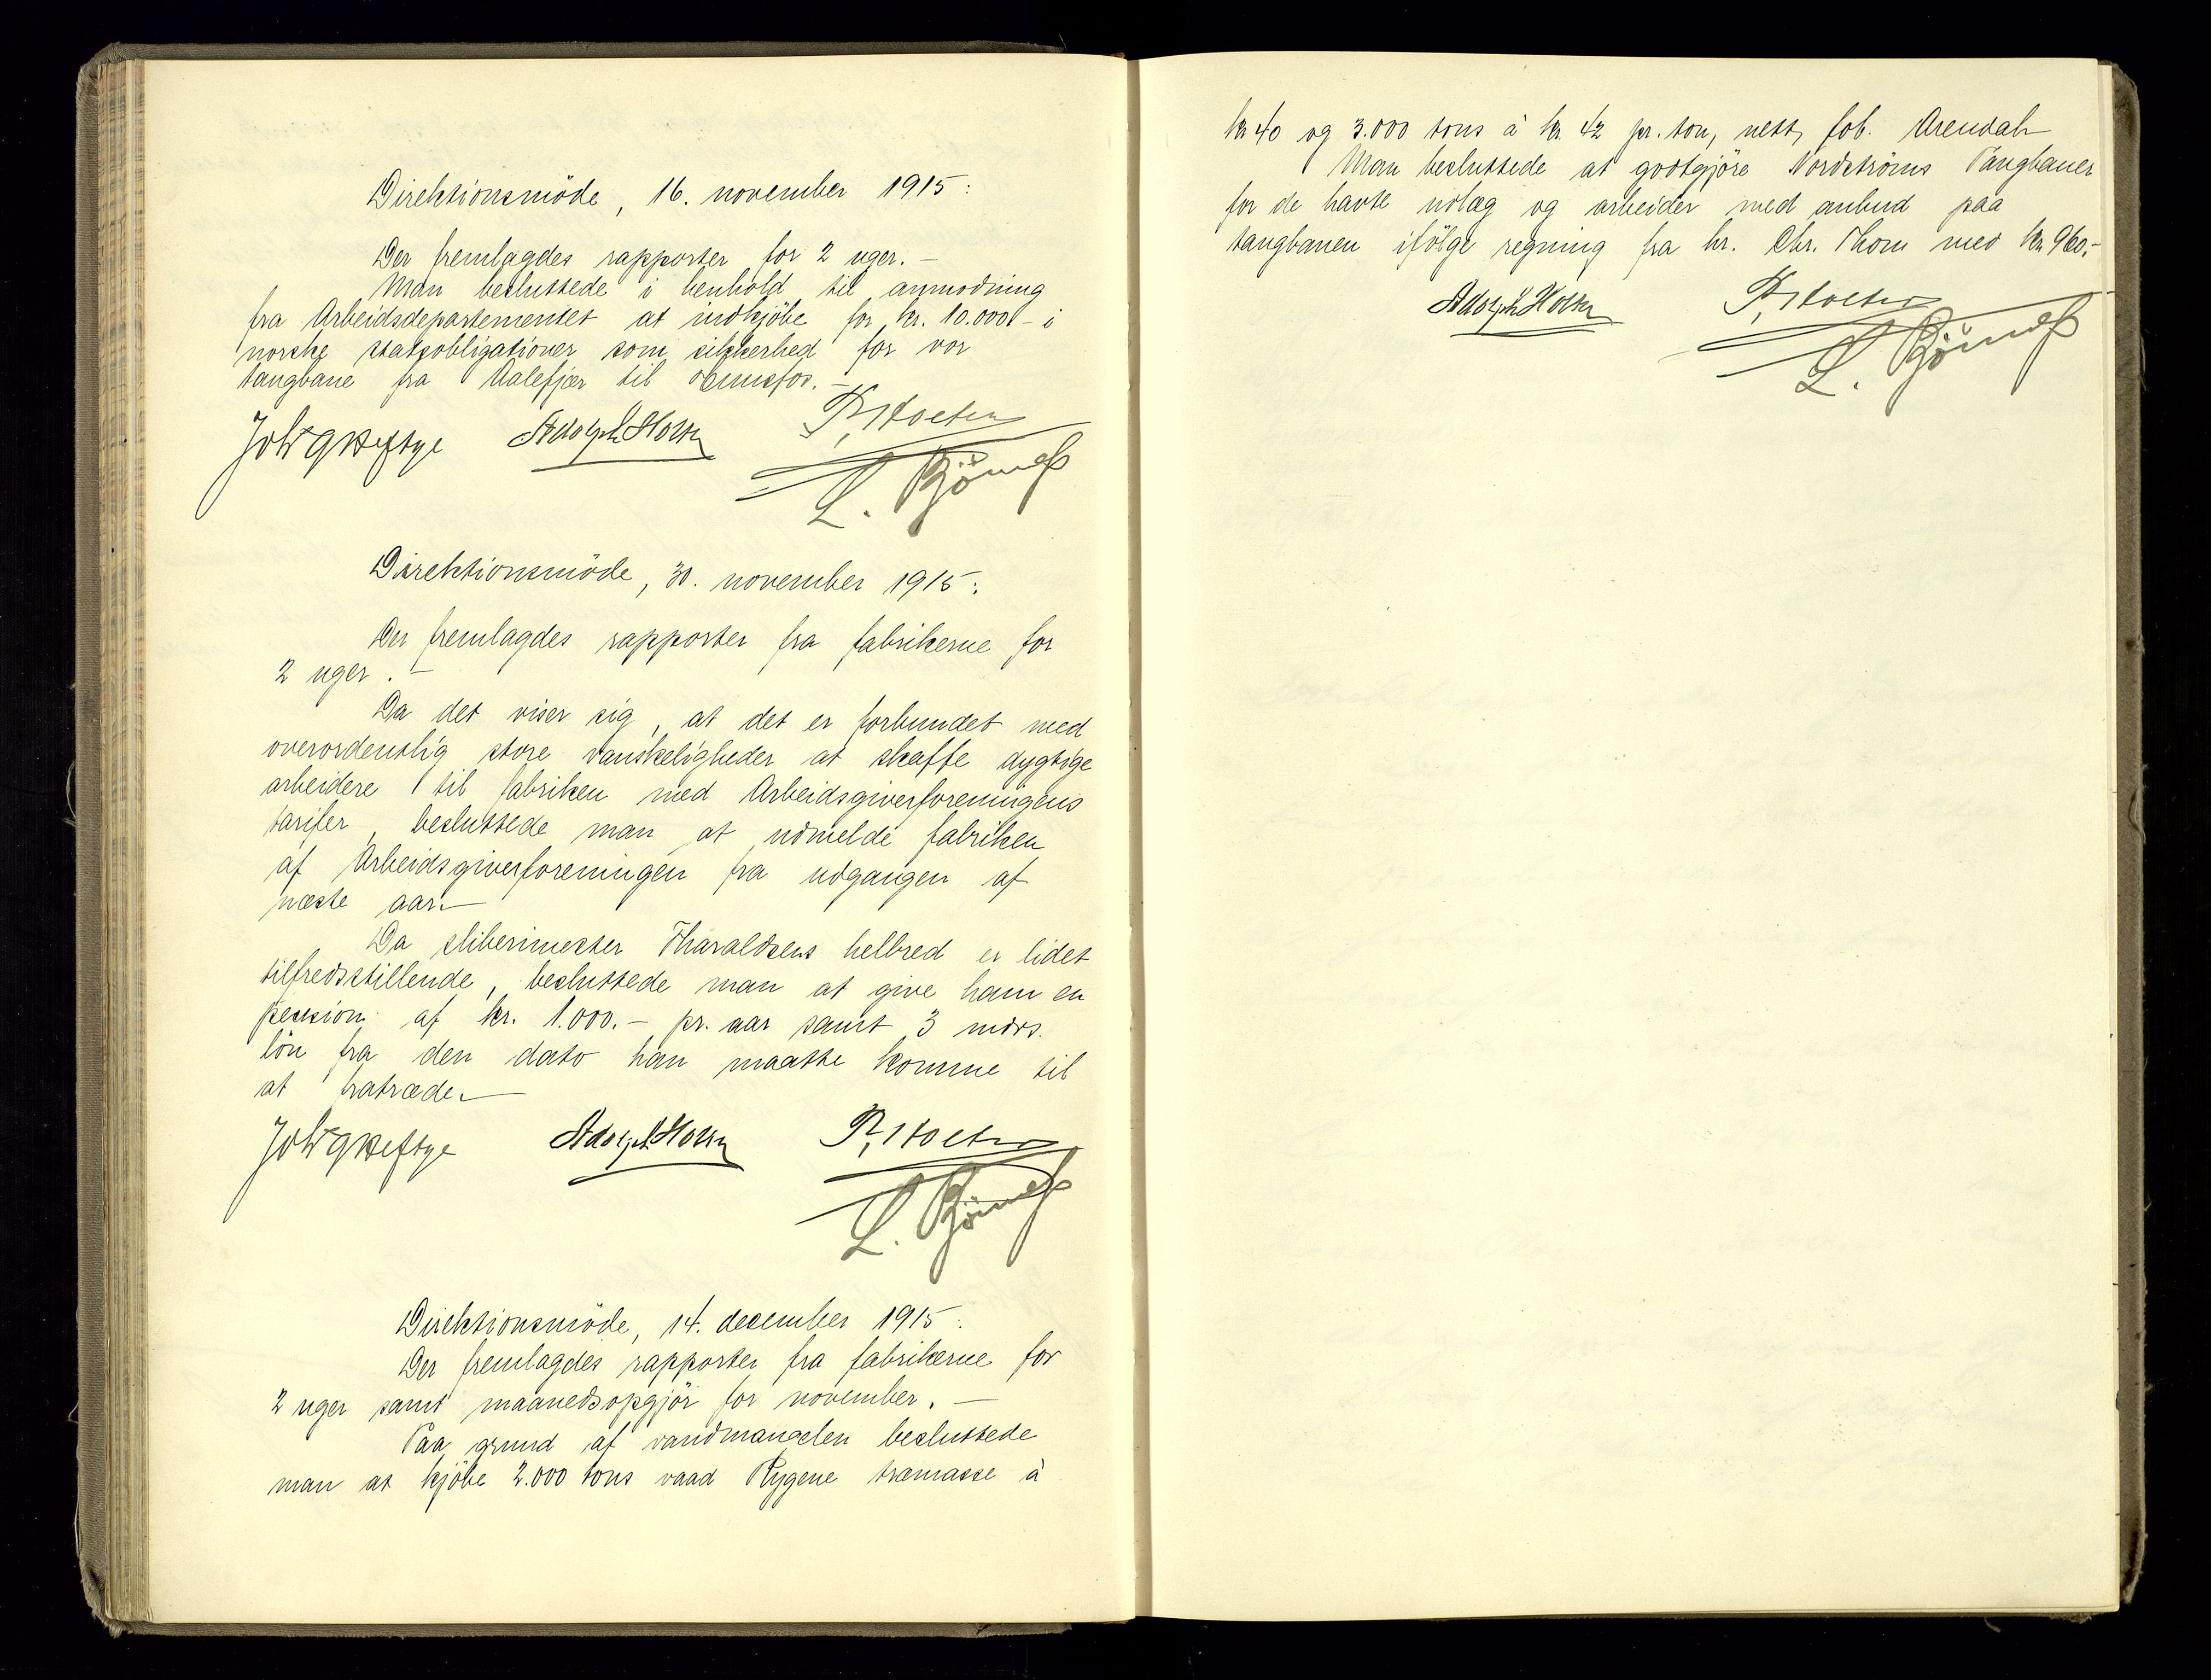 Direktionsmöde, 16. november 1915:
Der fremlagdes rapporter for 2 uger. —
Man besluttede i henhold til anmodning
fra Arbeidsdepartementet at indkjöbe for kr. 10.000 - i
norske statsobligationer som sikkerhed for vor
taugbane fra Aalefjær til Vennefos. —
Joh Heftye Adolph Holst
L. Rjömeß
Direktionsmöde, 30. november 1915:
Der fremlagdes rapporter fra fabrikerne for
2 uger. —
Da det viser sig, at det er forbundet med
overordentlig store vanskeligheder at skaffe dygtige
arbeidere til fabriken med Arbeidsgiverforeningens
tarifer, besluttede man at udmelde fabriken
af Arbeidsgiverforeningen fra udgangen af
næste aar. —
Da sliberimester Tharaldsens helbred er lidet
tilfredsstillende, besluttede man at give ham en
pension af kr. 1.000. — pr. aar samt 3 mdrs.
lön fra den dato han maatte komme til
at fratræde. —
Joh Heftye Adolph Holst
L.
Direktionsmöde, 14. december 1915:
Der fremlagdes rapporter fra fabrikerne for
2 uger samt maanedsopgjör for november. —
Paa grund af vandmangelen besluttede
man at kjöbe 2.000 tons vaad Rygene træmasse à
kr 40 og 3.000 tons à kr. 42 pr. ton, netto, fob. Arendal. —
Man besluttede at godtgjöre Nordströms Taugbaner
for de havte udlæg og arbeider med anbud paa
taugbanen ifölge regning fra hr. Chr. Thom med kr. 960.-
Adolph Holst
L.